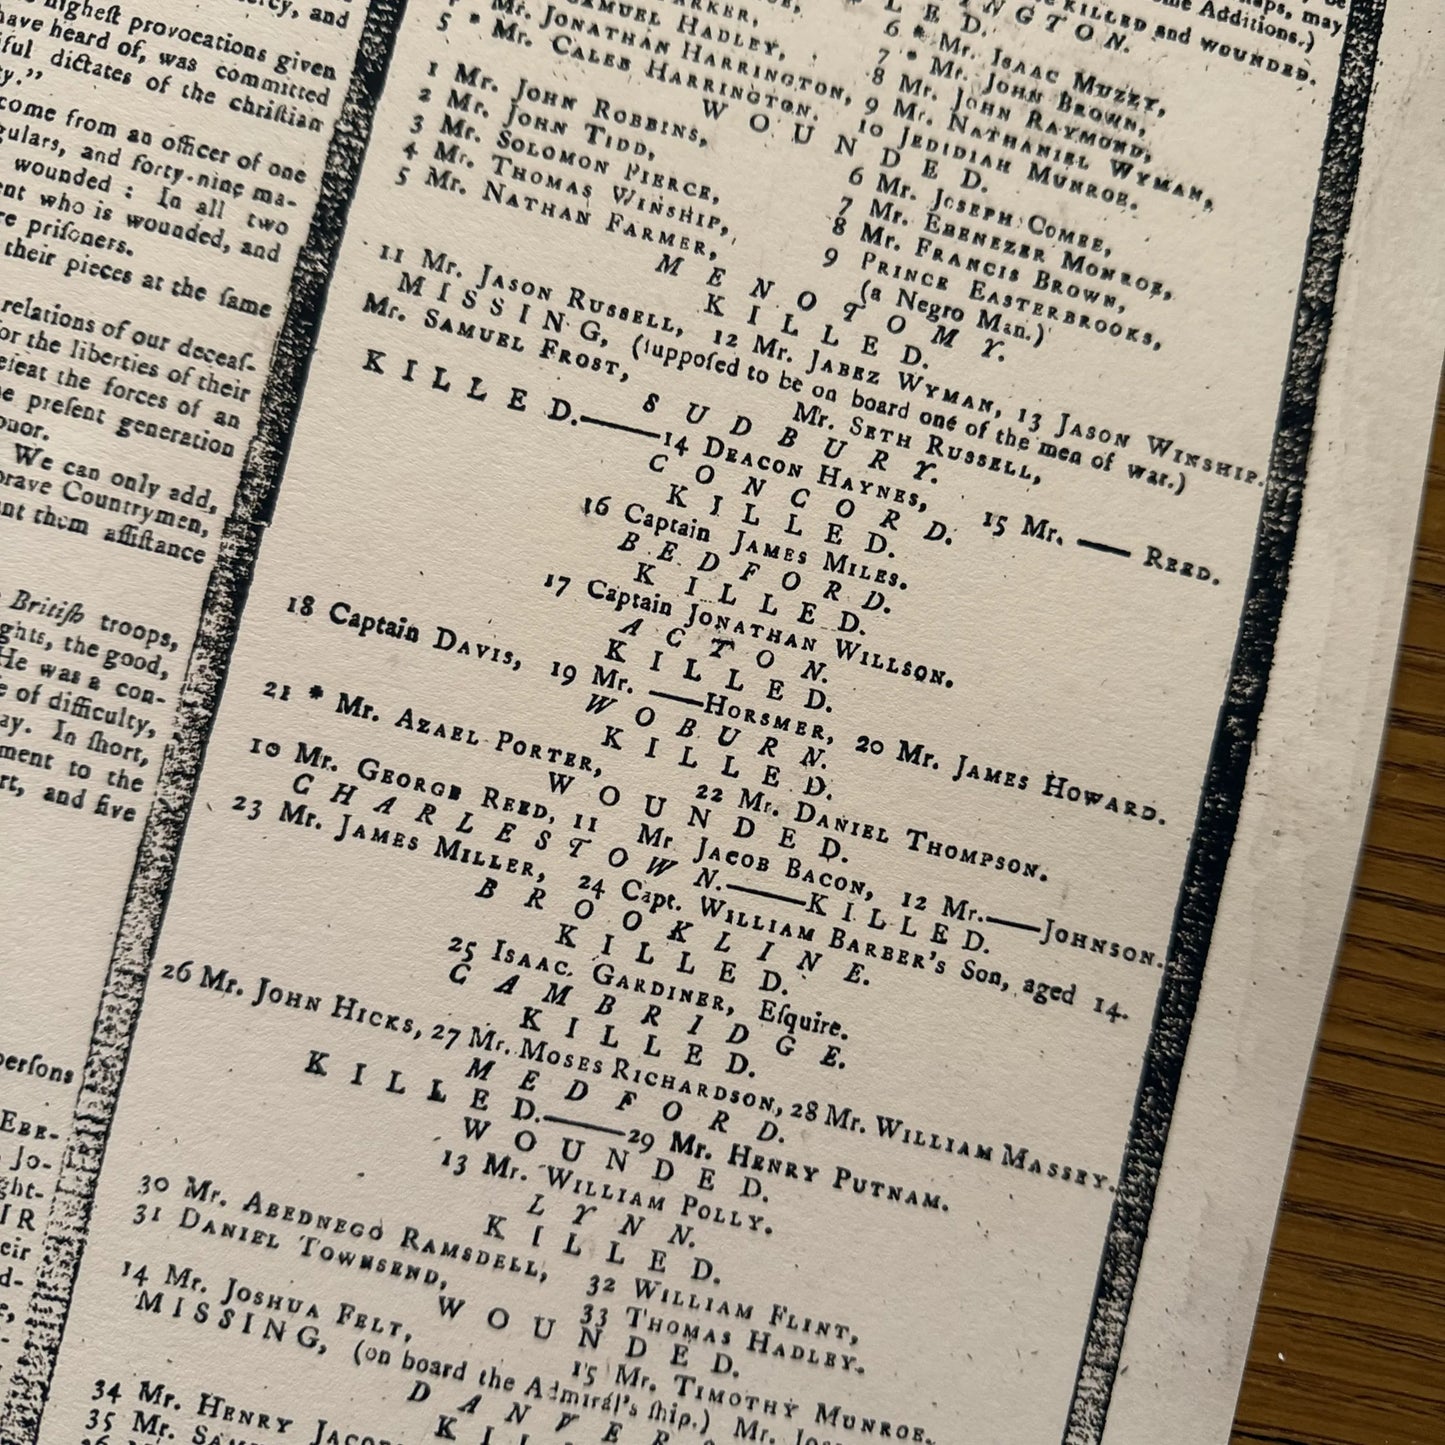 highest provocations given
have heard of, was committed
dictates of the christian
come from an officer of one
gulars, and forty-nine ma-
wounded : In all two
ent who is wounded, and
re prisoners.
their pieces at the same
relations of our deceas-
or the liberties of their
efeat the forces of an
e present generation
onor.
We can only add,
brave Countrymen,
nt them assistance
British troops,
ghts, the good,
He was a con-
e of difficulty,
ay. In short,
ment to the
rt, and five
persons
EBE-
Jo-
ght-
IR
eir
me Additions.)
KILLED and WOUNDED.
Mr. SAMUEL HADLEY,
Mr. JONATHAN HARRINGTON,
5 * Mr. CALEB HARRINGTON.
6 * Mr. ISAAC MUZZY,
7 * Mr. JOHN BROWN,
8 Mr. JOHN RAYMOND,
9 Mr. NATHANIEL WYMAN,
10 JEDIDIAH MUNROE.
WOUNDED.
1 Mr. JOHN ROBBINS,
2 Mr. JOHN TIDD,
3 Mr. SOLOMON PIERCE,
4 Mr. THOMAS WINSHIP,
5 Mr. NATHAN FARMER,
6 Mr. JOSEPH COMEE,
7 Mr. EBENEZER MONROE,
8 Mr. FRANCIS BROWN,
9 PRINCE EASTERBROOKS,
(a Negro Man.)
MENOTOMY.
KILLED.
11 Mr. JASON RUSSELL, 12 Mr. JABEZ WYMAN, 13 JASON WINSHIP.
MISSING, (supposed to be on board one of the men of war.)
Mr. SAMUEL FROST, Mr. SETH RUSSELL,
SUDBURY.
KILLED.——14 DEACON HAYNES, 15 Mr. —— REED.
CONCORD.
KILLED.
16 Captain JAMES MILES.
BEDFORD.
KILLED.
17 Captain JONATHAN WILLSON.
ACTON.
KILLED.
18 Captain DAVIS, 19 Mr. ——HORSMER, 20 Mr. JAMES HOWARD.
WOBURN.
KILLED.
21 * Mr. AZAEL PORTER, 22 Mr. DANIEL THOMPSON.
WOUNDED.
10 Mr. GEORGE REED, 11 Mr JACOB BACON, 12 Mr.——JOHNSON.
CHARLESTOWN.——KILLED.
23 Mr. JAMES MILLER, 24 Capt. WILLIAM BARBER'S Son, aged 14.
BROOKLINE.
KILLED.
25 ISAAC GARDINER, Esquire.
CAMBRIDGE.
KILLED.
26 Mr. JOHN HICKS, 27 Mr. MOSES RICHARDSON, 28 Mr. WILLIAM MASSEY.
MEDFORD.
KILLED.——29 Mr. HENRY PUTNAM.
WOUNDED.
13 Mr. WILLIAM POLLY.
LYNN.
KILLED.
30 Mr. ABEDNEGO RAMSDELL, 32 WILLIAM FLINT,
31 DANIEL TOWNSEND, 33 THOMAS HADLEY.
WOUNDED.
14 Mr. JOSHUA FELT, 15 Mr. TIMOTHY MUNROE.
MISSING, (on board the Admiral's ship.) Mr.
DANVERS
34 Mr. HENRY
35 Mr.